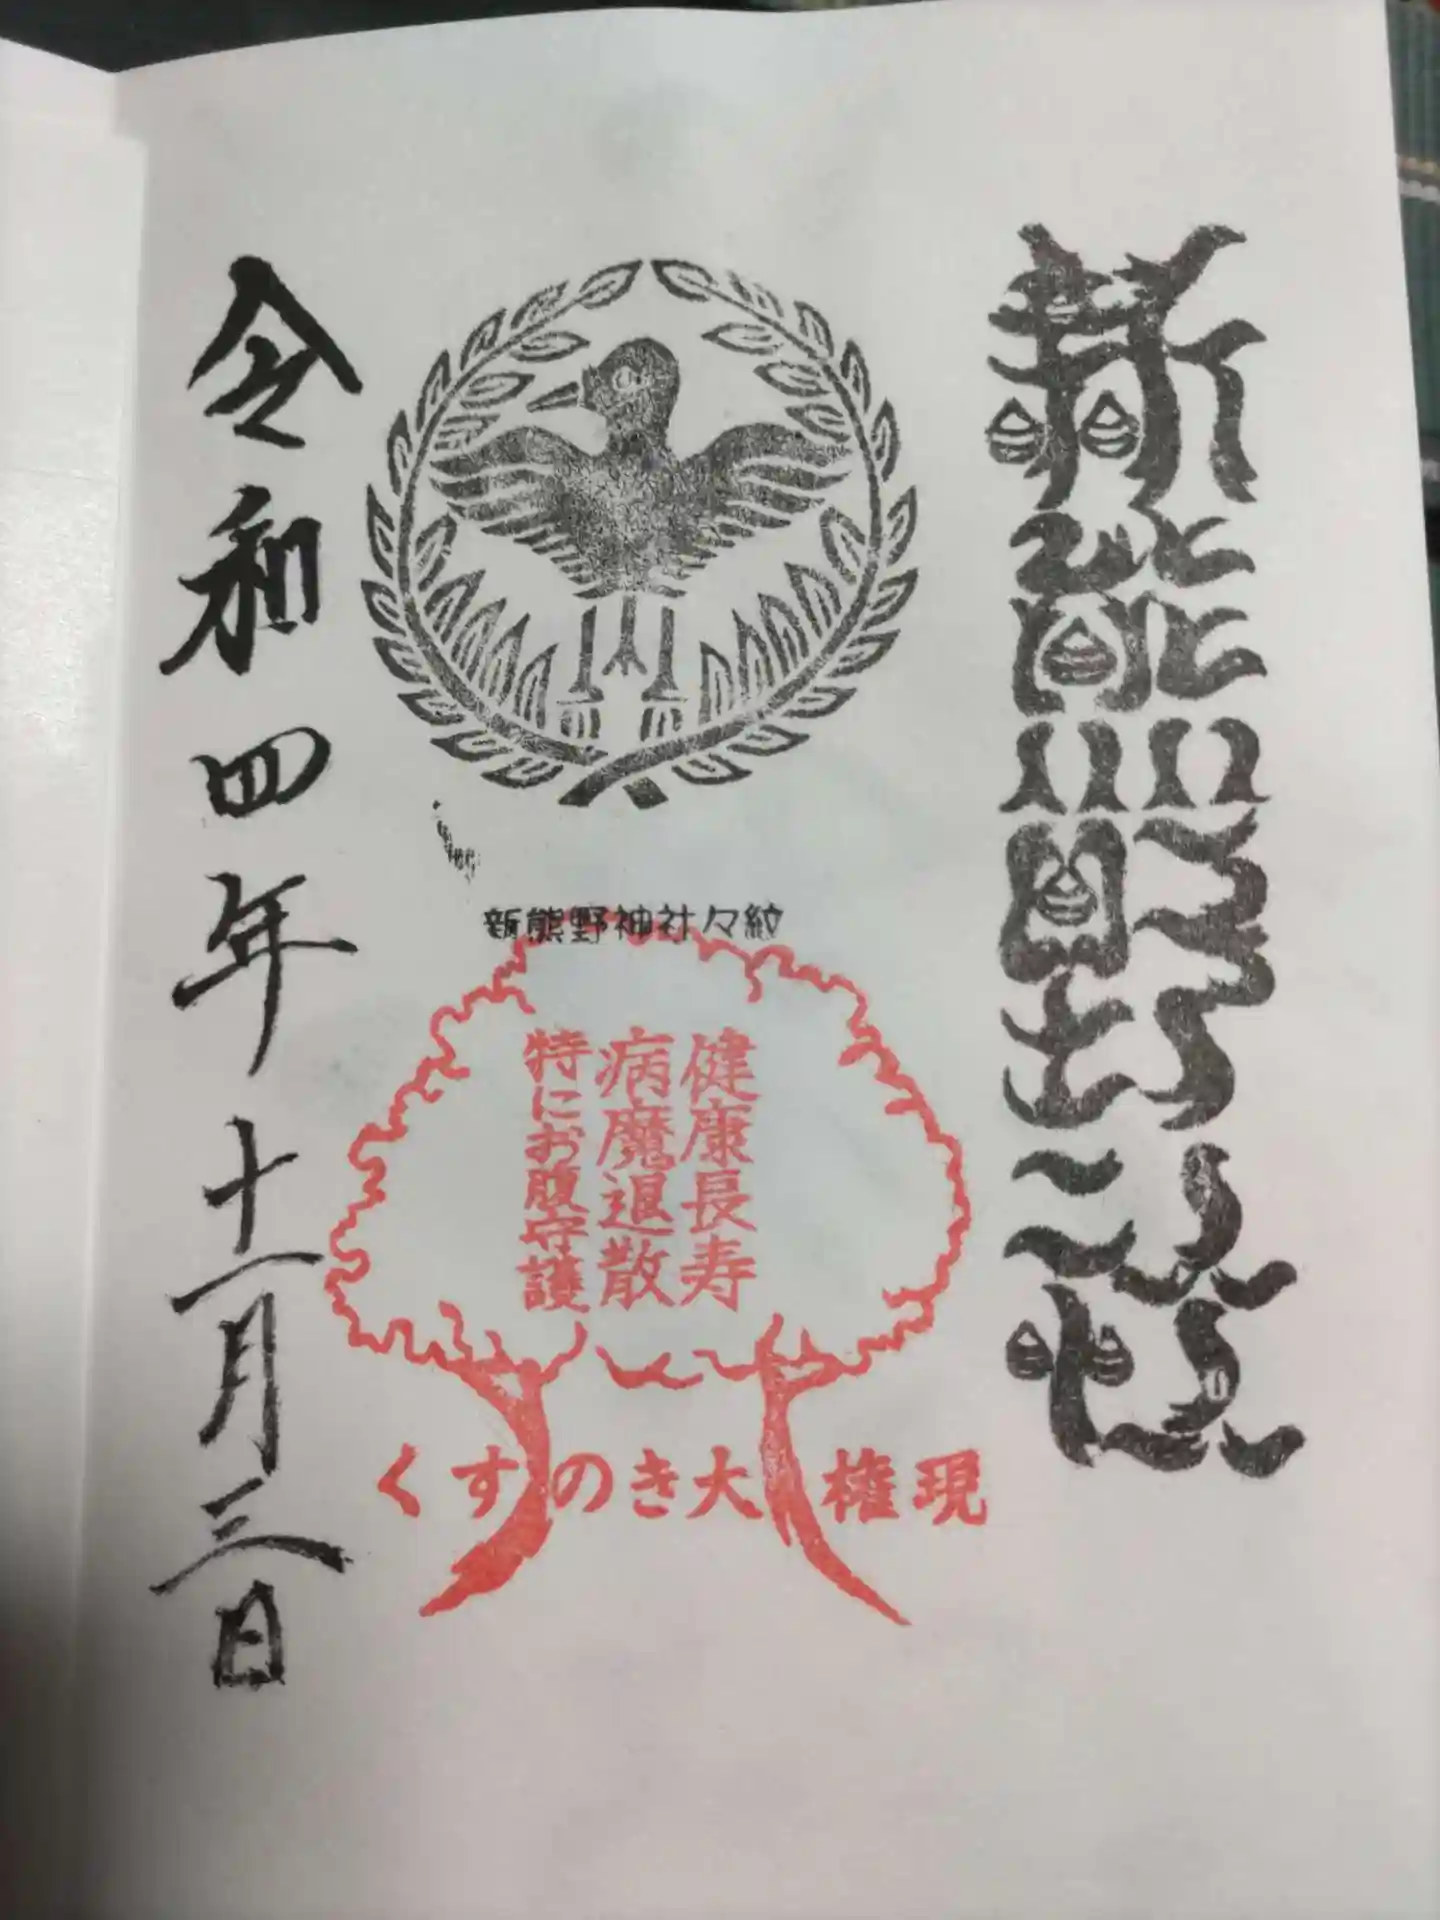 新熊野社
新熊野神社々紋
健康長寿
病魔退散
特にお腹守護
くすのき大権現
令和四年十一月三日